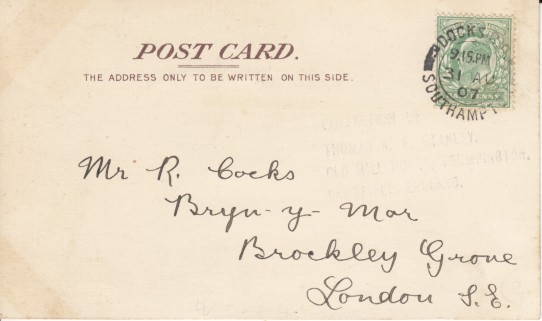 POST CARD.
THE ADDRESS ONLY TO BE WRITTEN ON THIS SIDE.
DOCKS
9.15.PM
31 AU
07
SOUTHAMPT
Mr R. Cocks
Bryn-y-Mar
Brockley Grove
London S.E.